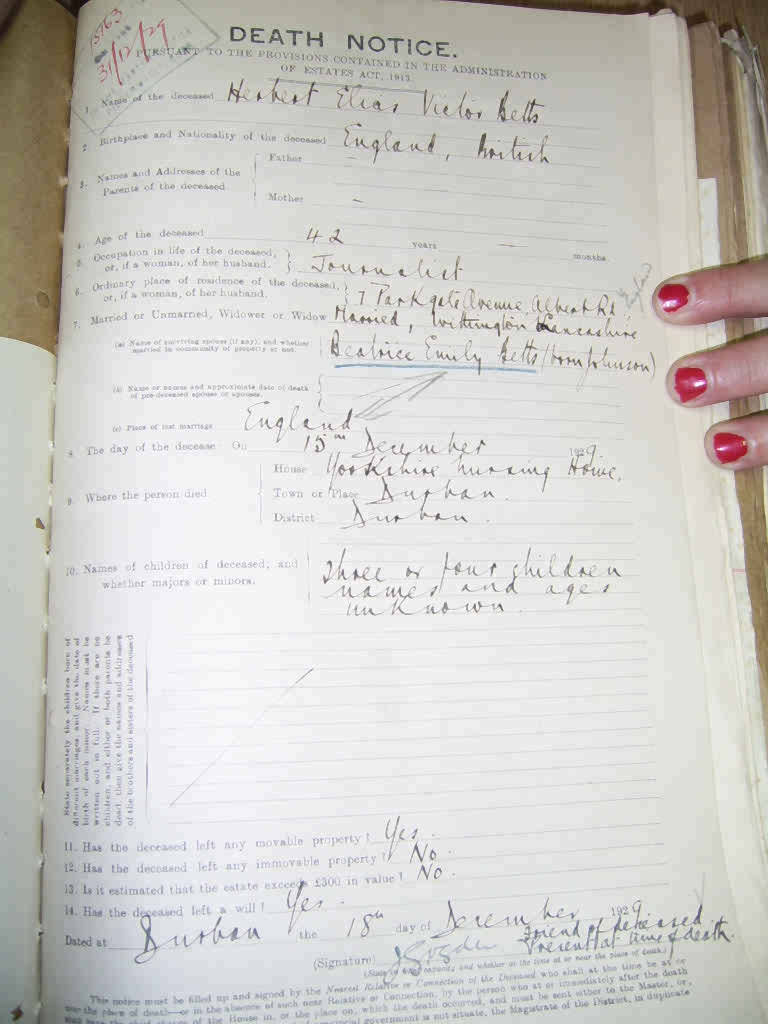 15763
31/12/29
DEATH NOTICE.
PURSUANT TO THE PROVISIONS CONTAINED IN THE ADMINISTRATION
OF ESTATES ACT, 1913.
1. Name of the deceased Herbert Elias Victor Betts
2. Birthplace and Nationality of the deceased England, British
3. Names and Addresses of the Parents of the deceased.
Father —
Mother —
4. Age of the deceased 42 years — months.
5. Occupation in life of the deceased, or, if a woman, of her husband. Journalist
6. Ordinary place of residence of the deceased, or, if a woman, of her husband. 7 Parkgate Avenue, Albert Rd, England
7. Married or Unmarried, Widower or Widow Married, Withington Lancashire
(a) Name of surviving spouse (if any), and whether married in community of property or not. Beatrice Emily Betts (born Johnson)
(b) Name or names and approximate date of death of pre-deceased spouse or spouses.
(c) Place of last marriage England
8. The day of the decease On 15th December 1929.
9. Where the person died
House Yorkshire Nursing Home.
Town or Place Durban.
District Durban.
10. Names of children of deceased, and whether majors or minors.
Three or four children
names and ages
unknown.
State separately the children born of
different marriages, and give the date of
birth of each minor. Names must be
written out in full. If there are no
children, and either or both parents be
dead, then give the names and addresses
of the brothers and sisters of the deceased
11. Has the deceased left any movable property? Yes.
12. Has the deceased left any immovable property? No.
13. Is it estimated that the estate exceeds £300 in value? No.
14. Has the deceased left a will? Yes.
Dated at Durban the 18th day of December 1929
Friend of deceased.
(Signature) Present at time of death.
(State in what capacity, and whether at the time at or near the place of death.)
This notice must be filled up and signed by the Nearest Relative or Connection of the Deceased who shall at the time be at or
near the place of death—or in the absence of such near Relative or Connection, by the person who at or immediately after the death
of the House in, or the place on, which the death occurred, and must be sent either to the Master, or,
government is not situate, the Magistrate of the District, in duplicate